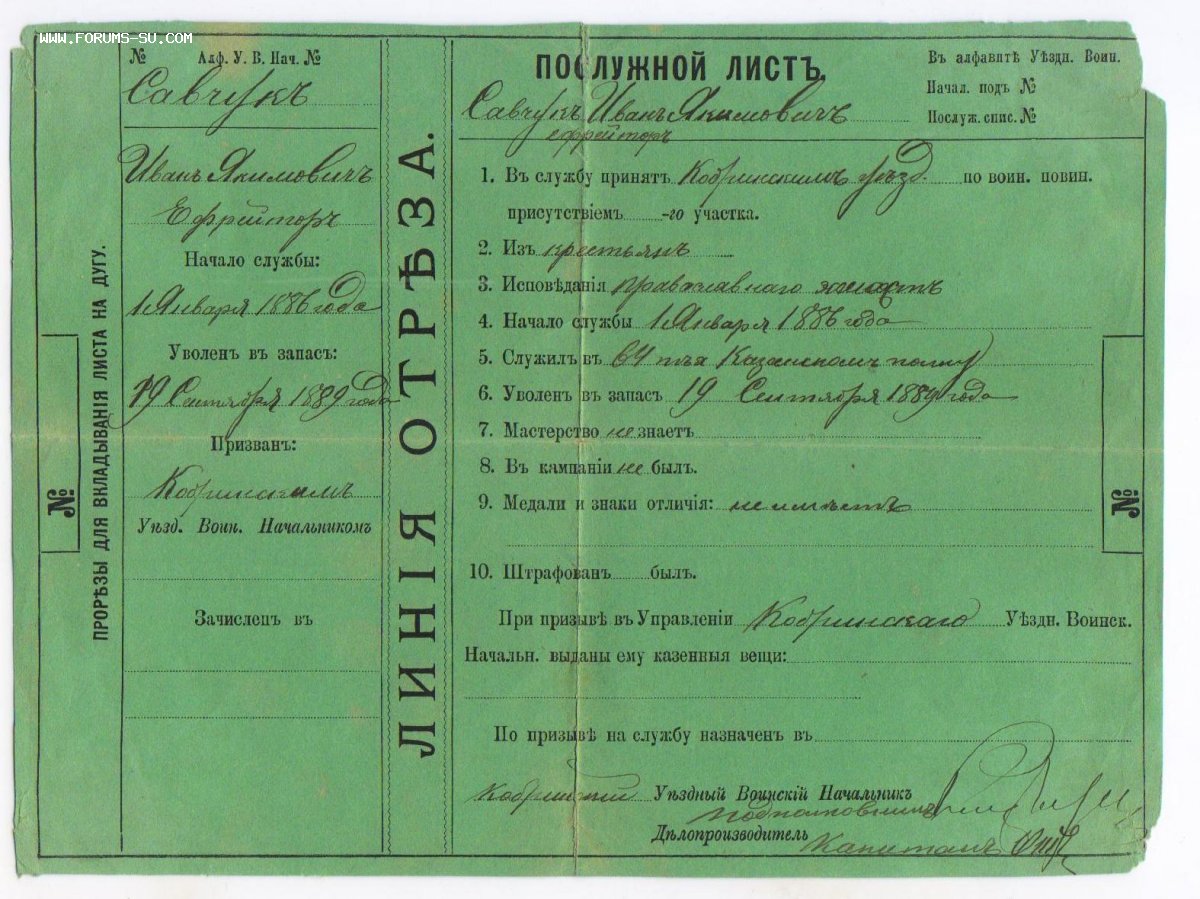 WWW.FORUMS-SU.COM
№ Алф. У. В. Нач. №
Савчукъ
Иванъ Якимовичъ
Ефрейторъ
Начало службы:
1 Января 1886 года
Уволенъ въ запасъ:
19 Сентября 1889 года
Призванъ:
Кобринскимъ
Уѣзд. Воин. Начальникомъ
Зачисленъ въ
ПРОРѢЗЫ ДЛЯ ВКЛАДЫВАНІЯ ЛИСТА НА ДУГУ.
№
ЛИНІЯ ОТРѢЗА.
ПОСЛУЖНОЙ ЛИСТЪ.
Въ алфавитѣ Уѣздн. Воин.
Начал. подъ №
Послуж. спис. №
Савчукъ Иванъ Якимовичъ
ефрейторъ
1. Въ службу принятъ Кобринскимъ уѣзд. по воин. повин.
присутствіемъ -го участка.
2. Изъ крестьянъ
3. Исповѣданія православнаго
4. Начало службы 1 Января 1886 года
5. Служилъ въ 64 Казанскомъ полку
6. Уволенъ въ запасъ 19 Сентября 1889 года
7. Мастерство не знаетъ
8. Въ кампаніи не былъ.
9. Медали и знаки отличія: не имѣетъ
10. Штрафованъ былъ.
При призывѣ въ Управленіи Кобринскаго Уѣздн. Воинск.
Начальн. выданы ему казенныя вещи:
По призывѣ на службу назначенъ въ
Кобринскій Уѣздный Воинскій Начальникъ
Подполковникъ
Дѣлопроизводитель
Капитанъ
№